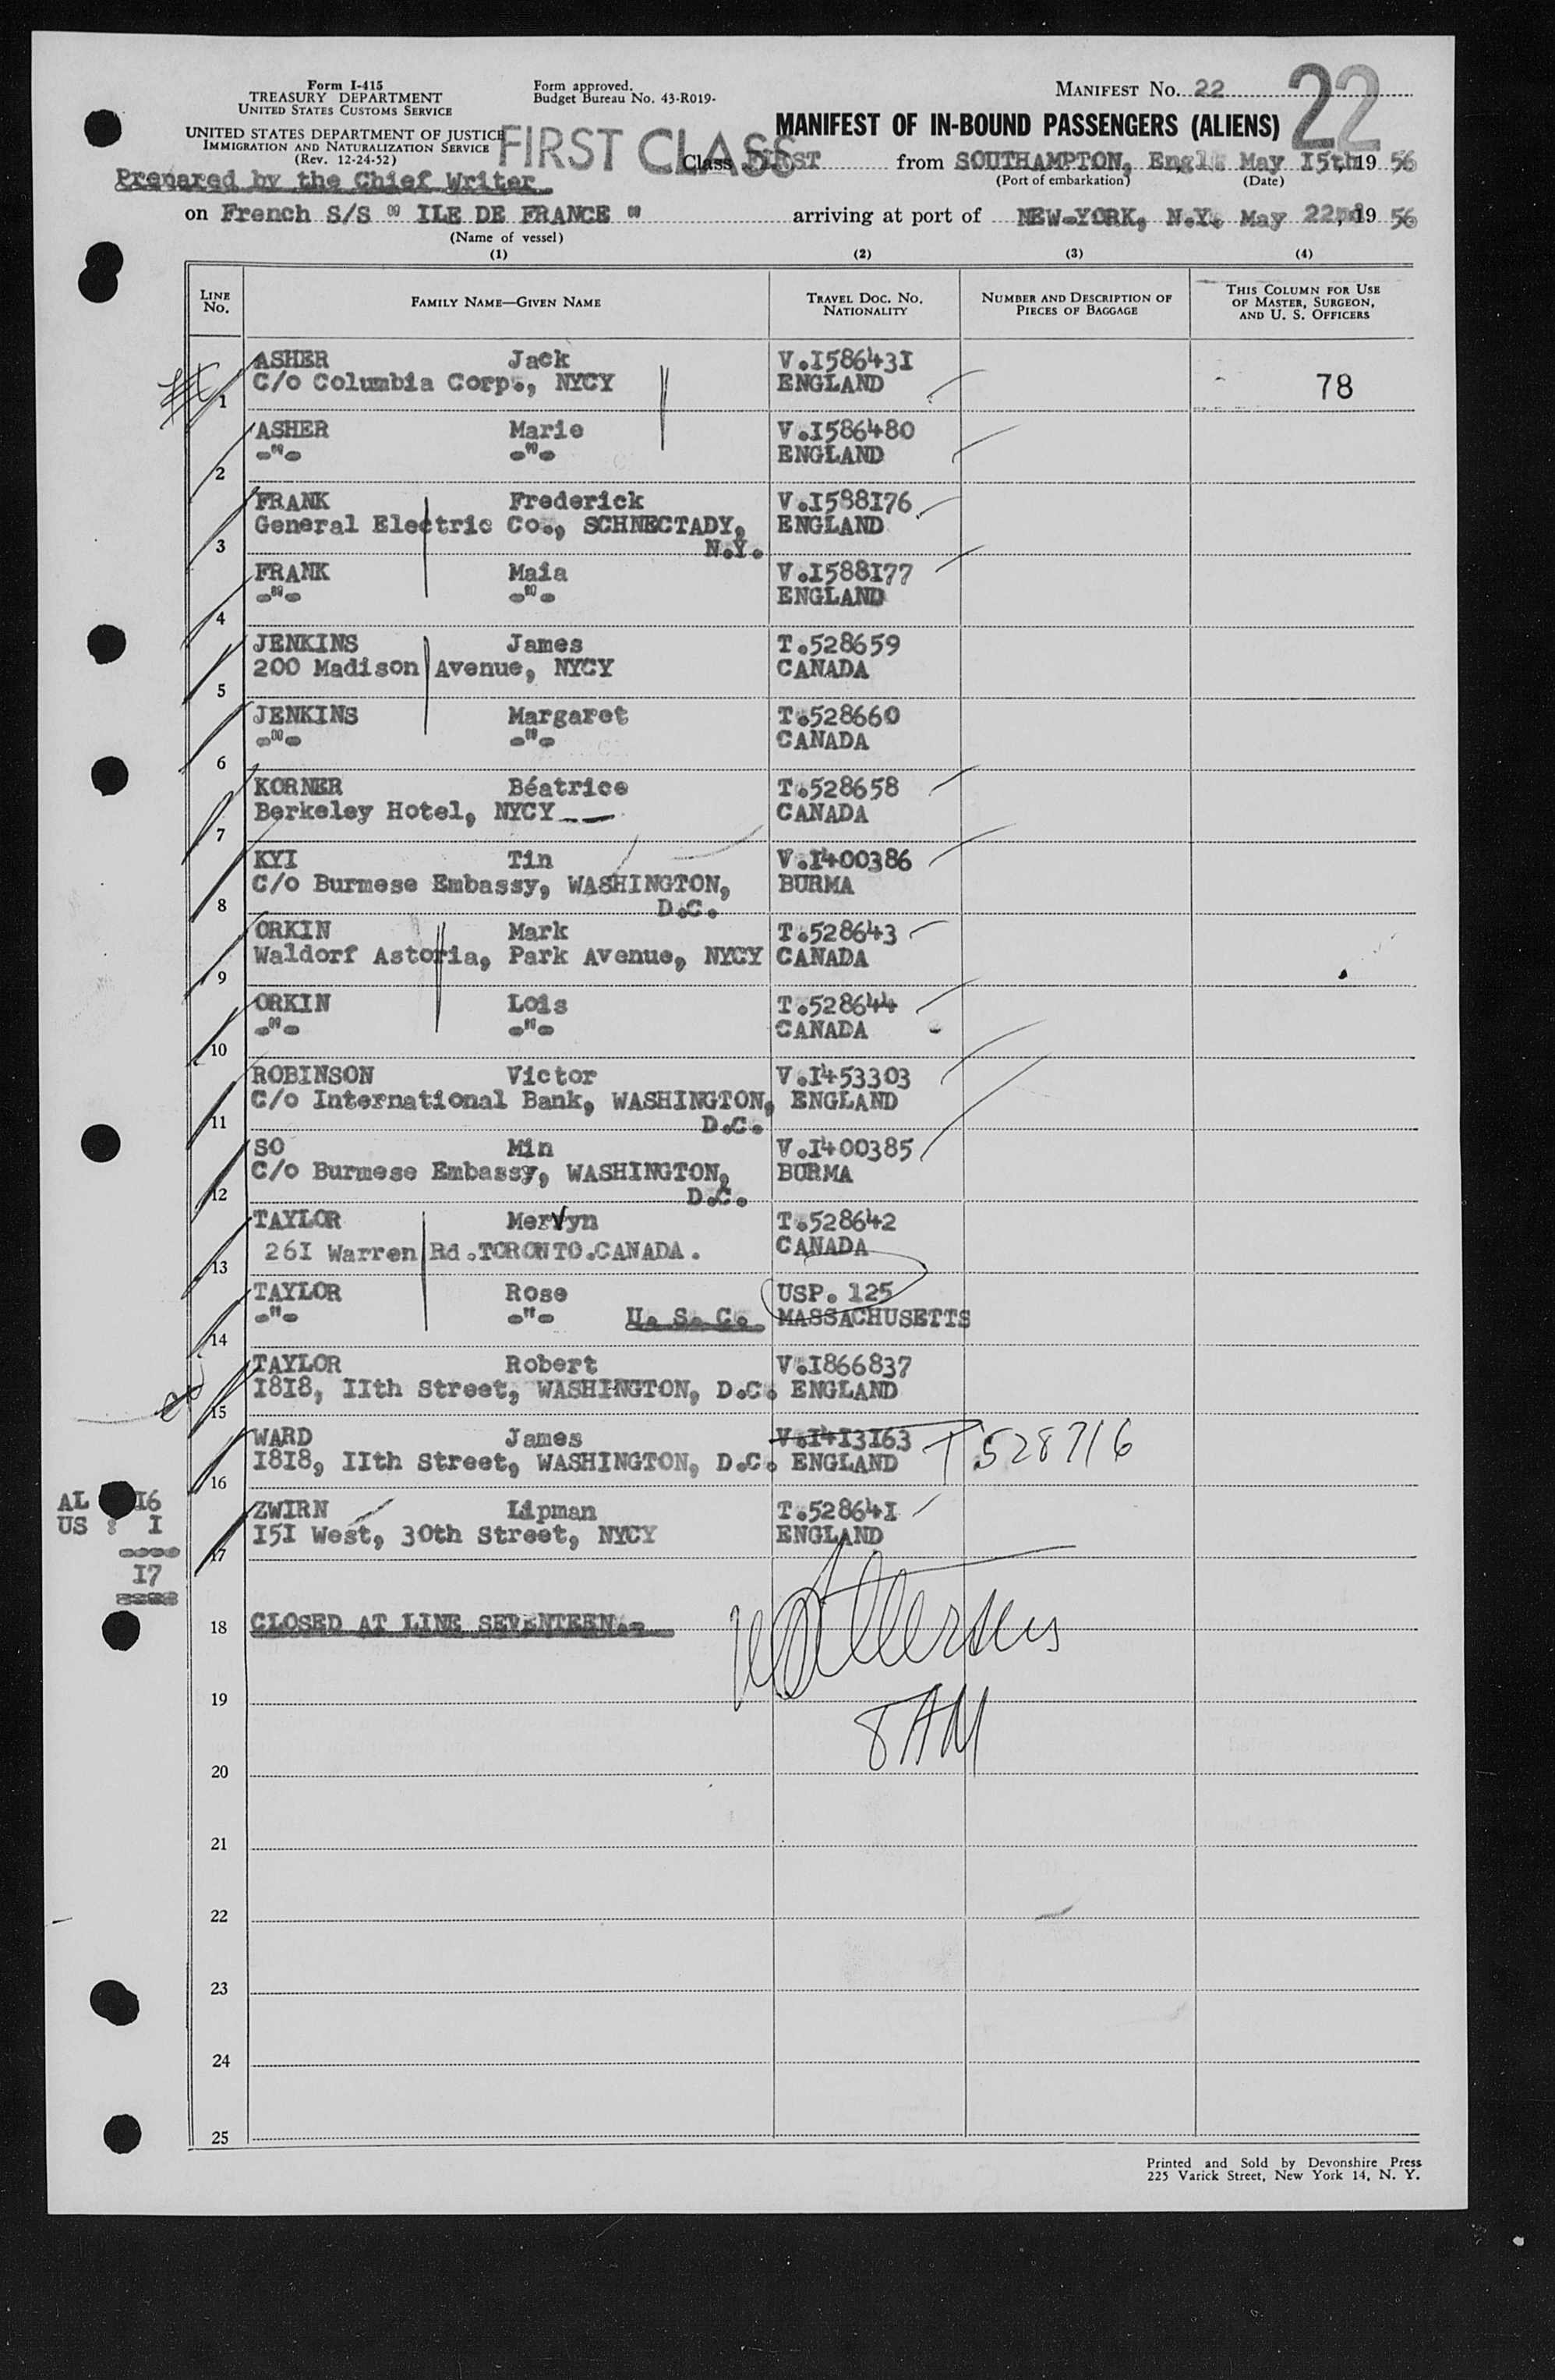 Form I-415
TREASURY DEPARTMENT
UNITED STATES CUSTOMS SERVICE
UNITED STATES DEPARTMENT OF JUSTICE
IMMIGRATION AND NATURALIZATION SERVICE
(Rev. 12-24-52)
Form approved.
Budget Bureau No. 43-R019-
MANIFEST No. 22
22
MANIFEST OF IN-BOUND PASSENGERS (ALIENS)
FIRST CLASS
Class FIRST from SOUTHAMPTON, Engl. May I5th, 19 56
(Port of embarkation) (Date)
Prepared by the Chief Writer
on French S/S " ILE DE FRANCE " arriving at port of NEW-YORK, N.Y. May 22nd, 19 56
(Name of vessel)
(1) (2) (3) (4)
LINE No. FAMILY NAME—GIVEN NAME TRAVEL DOC. NO. NATIONALITY NUMBER AND DESCRIPTION OF PIECES OF BAGGAGE THIS COLUMN FOR USE OF MASTER, SURGEON, AND U. S. OFFICERS
ASHER Jack V.I58643I
1 C/o Columbia Corp., NYCY ENGLAND 78
ASHER Marie V.I586480
2 -"- -"- ENGLAND
FRANK Frederick V.I588I76
3 General Electric Co., SCHNECTADY, N.Y. ENGLAND
FRANK Maia V.I588I77
4 -"- -"- ENGLAND
JENKINS James T.528659
5 200 Madison Avenue, NYCY CANADA
JENKINS Margaret T.528660
6 -"- -"- CANADA
KORNER Béatrice T.528658
7 Berkeley Hotel, NYCY CANADA
KYI Tin V.I400386
8 C/o Burmese Embassy, WASHINGTON, D.C. BURMA
ORKIN Mark T.528643
9 Waldorf Astoria, Park Avenue, NYCY CANADA
ORKIN Lois T.528644
10 -"- -"- CANADA
ROBINSON Victor V.I453303
11 C/o International Bank, WASHINGTON, D.C. ENGLAND
SO Min V.I400385
12 C/o Burmese Embassy, WASHINGTON, D.C. BURMA
TAYLOR Mervyn T.528642
13 26I Warren Rd.TORONTO.CANADA. CANADA
TAYLOR Rose USP. 125
14 -"- -"- U. S. C. MASSACHUSETTS
TAYLOR Robert V.I866837
15 I8I8, IIth Street, WASHINGTON, D.C. ENGLAND
WARD James V.I4I3I63 T 528716
16 I8I8, IIth Street, WASHINGTON, D.C. ENGLAND
ZWIRN Lipman T.52864I
17 I5I West, 30th Street, NYCY ENGLAND
AL I6
US : I
I7
18 CLOSED AT LINE SEVENTEEN.-
19
8 AM
20
21
22
23
24
25
Printed and Sold by Devonshire Press
225 Varick Street, New York 14, N. Y.